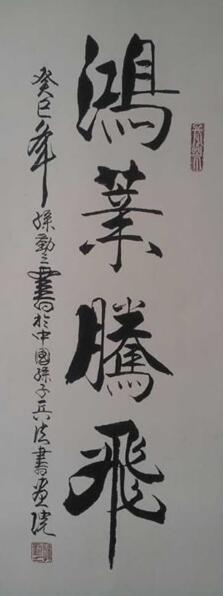 鴻業騰飛
癸巳年 孫勤三書於中國孫子兵法書畫院